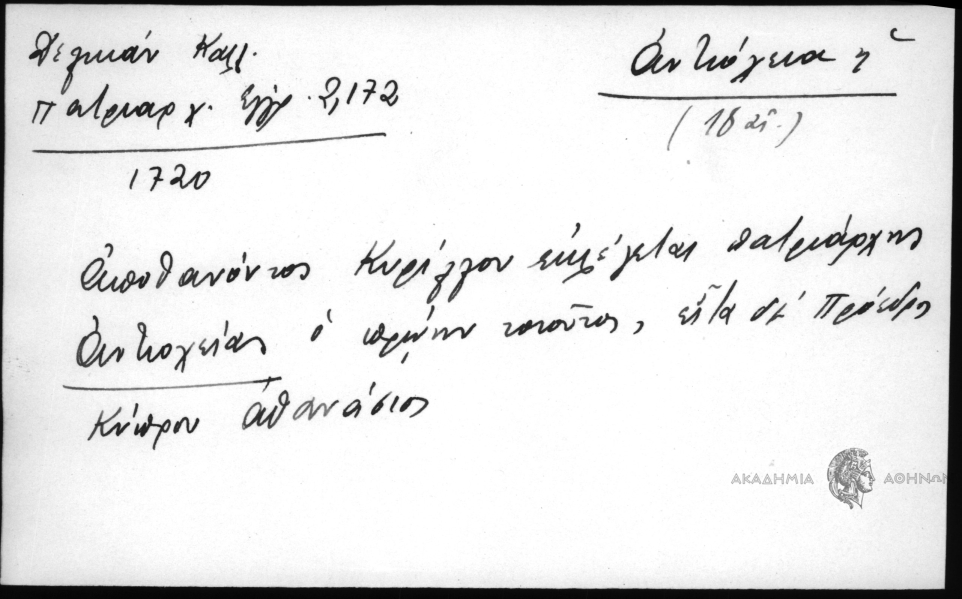 Δελικάν Καλλ.
Πατριαρχ. Εγγρ. 2,172
1720
Ἀντιόχεια ἡ
(18 αἰ.)
Ἀποθανόντος Κυρίλλου ἐκλέγεται πατριάρχης
Ἀντιοχείας ὁ πρώην τοιοῦτος, εἶτα δέ Πρόεδρος
Κύπρου Ἀθανάσιος
ΑΚΑΔΗΜΙΑ ΑΘΗΝΩΝ